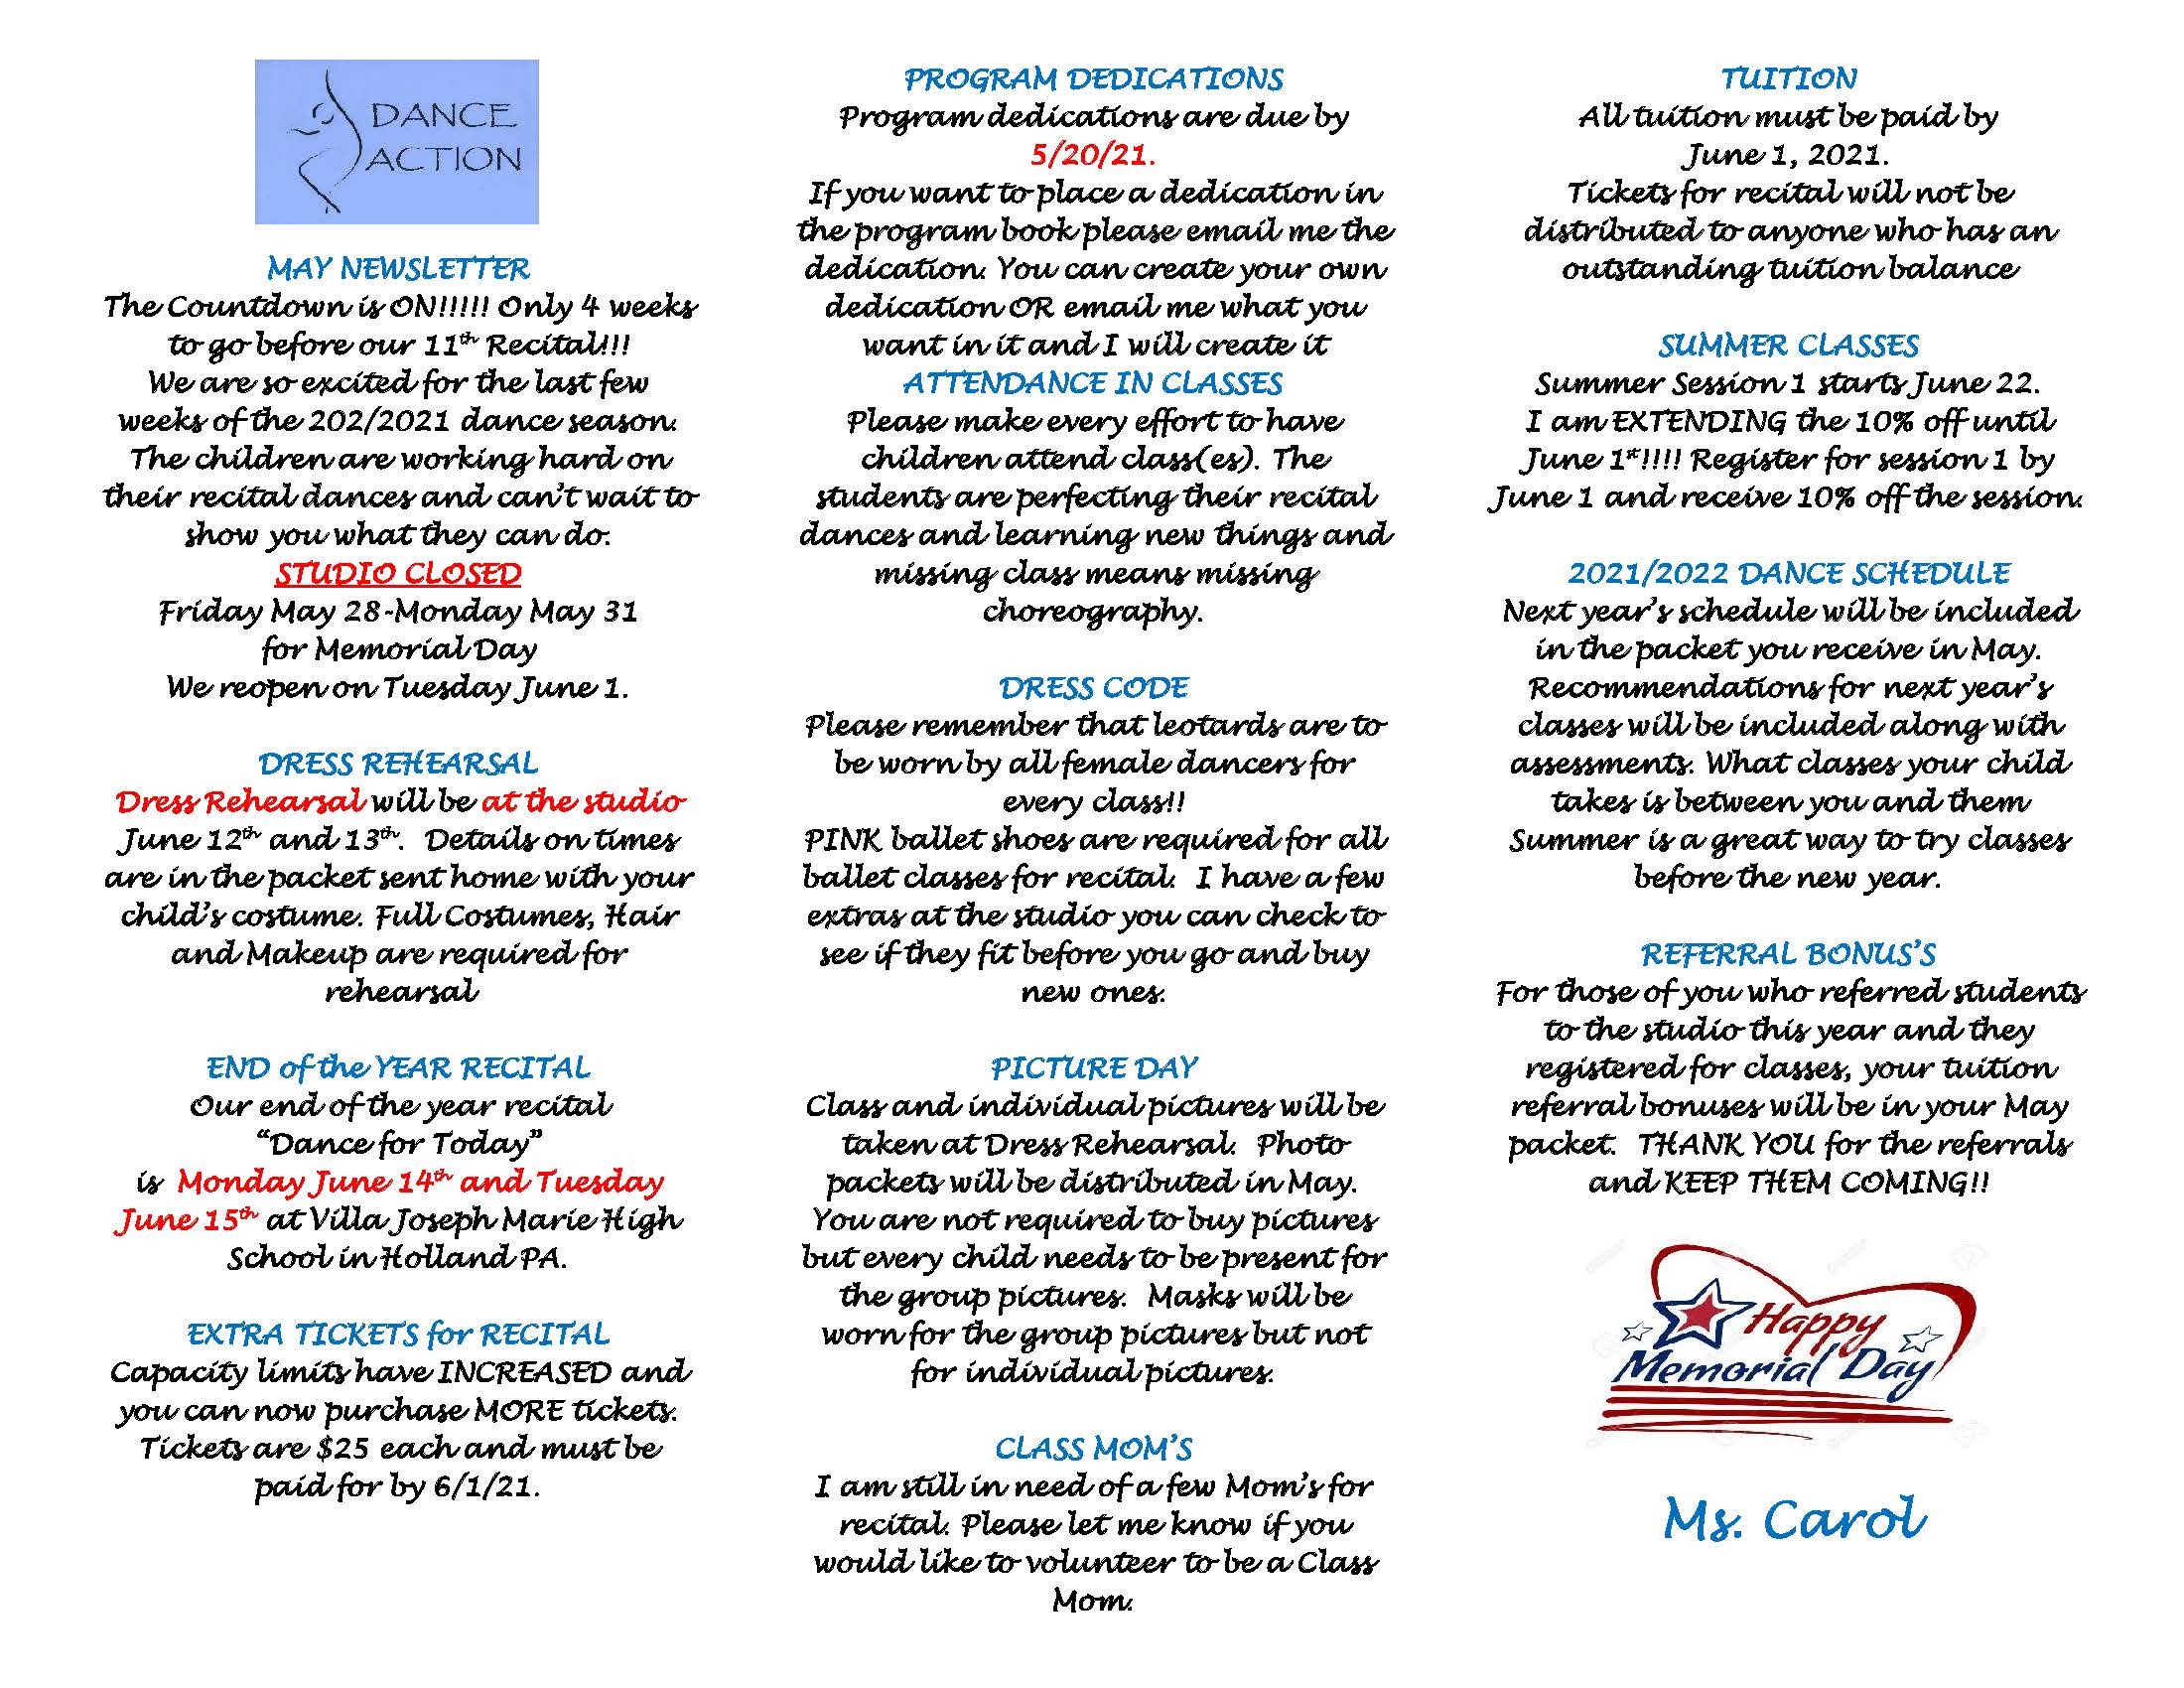 DANCE
ACTION
MAY NEWSLETTER
The Countdown is ON!!!!! Only 4 weeks
to go before our 11th Recital!!!
We are so excited for the last few
weeks of the 202/2021 dance season.
The children are working hard on
their recital dances and can't wait to
show you what they can do.
STUDIO CLOSED
Friday May 28-Monday May 31
for Memorial Day
We reopen on Tuesday June 1.
DRESS REHEARSAL
Dress Rehearsal will be at the studio
June 12th and 13th. Details on times
are in the packet sent home with your
child's costume. Full Costumes, Hair
and Makeup are required for
rehearsal
END of the YEAR RECITAL
Our end of the year recital
“Dance for Today”
is Monday June 14th and Tuesday
June 15th at Villa Joseph Marie High
School in Holland PA.
EXTRA TICKETS for RECITAL
Capacity limits have INCREASED and
you can now purchase MORE tickets.
Tickets are $25 each and must be
paid for by 6/1/21.
PROGRAM DEDICATIONS
Program dedications are due by
5/20/21.
If you want to place a dedication in
the program book please email me the
dedication. You can create your own
dedication OR email me what you
want in it and I will create it
ATTENDANCE IN CLASSES
Please make every effort to have
children attend class(es). The
students are perfecting their recital
dances and learning new things and
missing class means missing
choreography.
DRESS CODE
Please remember that leotards are to
be worn by all female dancers for
every class!!
PINK ballet shoes are required for all
ballet classes for recital. I have a few
extras at the studio you can check to
see if they fit before you go and buy
new ones.
PICTURE DAY
Class and individual pictures will be
taken at Dress Rehearsal. Photo
packets will be distributed in May.
You are not required to buy pictures
but every child needs to be present for
the group pictures. Masks will be
worn for the group pictures but not
for individual pictures.
CLASS MOM'S
I am still in need of a few Mom's for
recital. Please let me know if you
would like to volunteer to be a Class
Mom.
TUITION
All tuition must be paid by
June 1, 2021.
Tickets for recital will not be
distributed to anyone who has an
outstanding tuition balance
SUMMER CLASSES
Summer Session 1 starts June 22.
I am EXTENDING the 10% off until
June 1st!!!! Register for session 1 by
June 1 and receive 10% off the session.
2021/2022 DANCE SCHEDULE
Next year's schedule will be included
in the packet you receive in May.
Recommendations for next year's
classes will be included along with
assessments. What classes your child
takes is between you and them
Summer is a great way to try classes
before the new year.
REFERRAL BONUS'S
For those of you who referred students
to the studio this year and they
registered for classes, your tuition
referral bonuses will be in your May
packet. THANK YOU for the referrals
and KEEP THEM COMING!!
Happy
Memorial Day
Ms. Carol